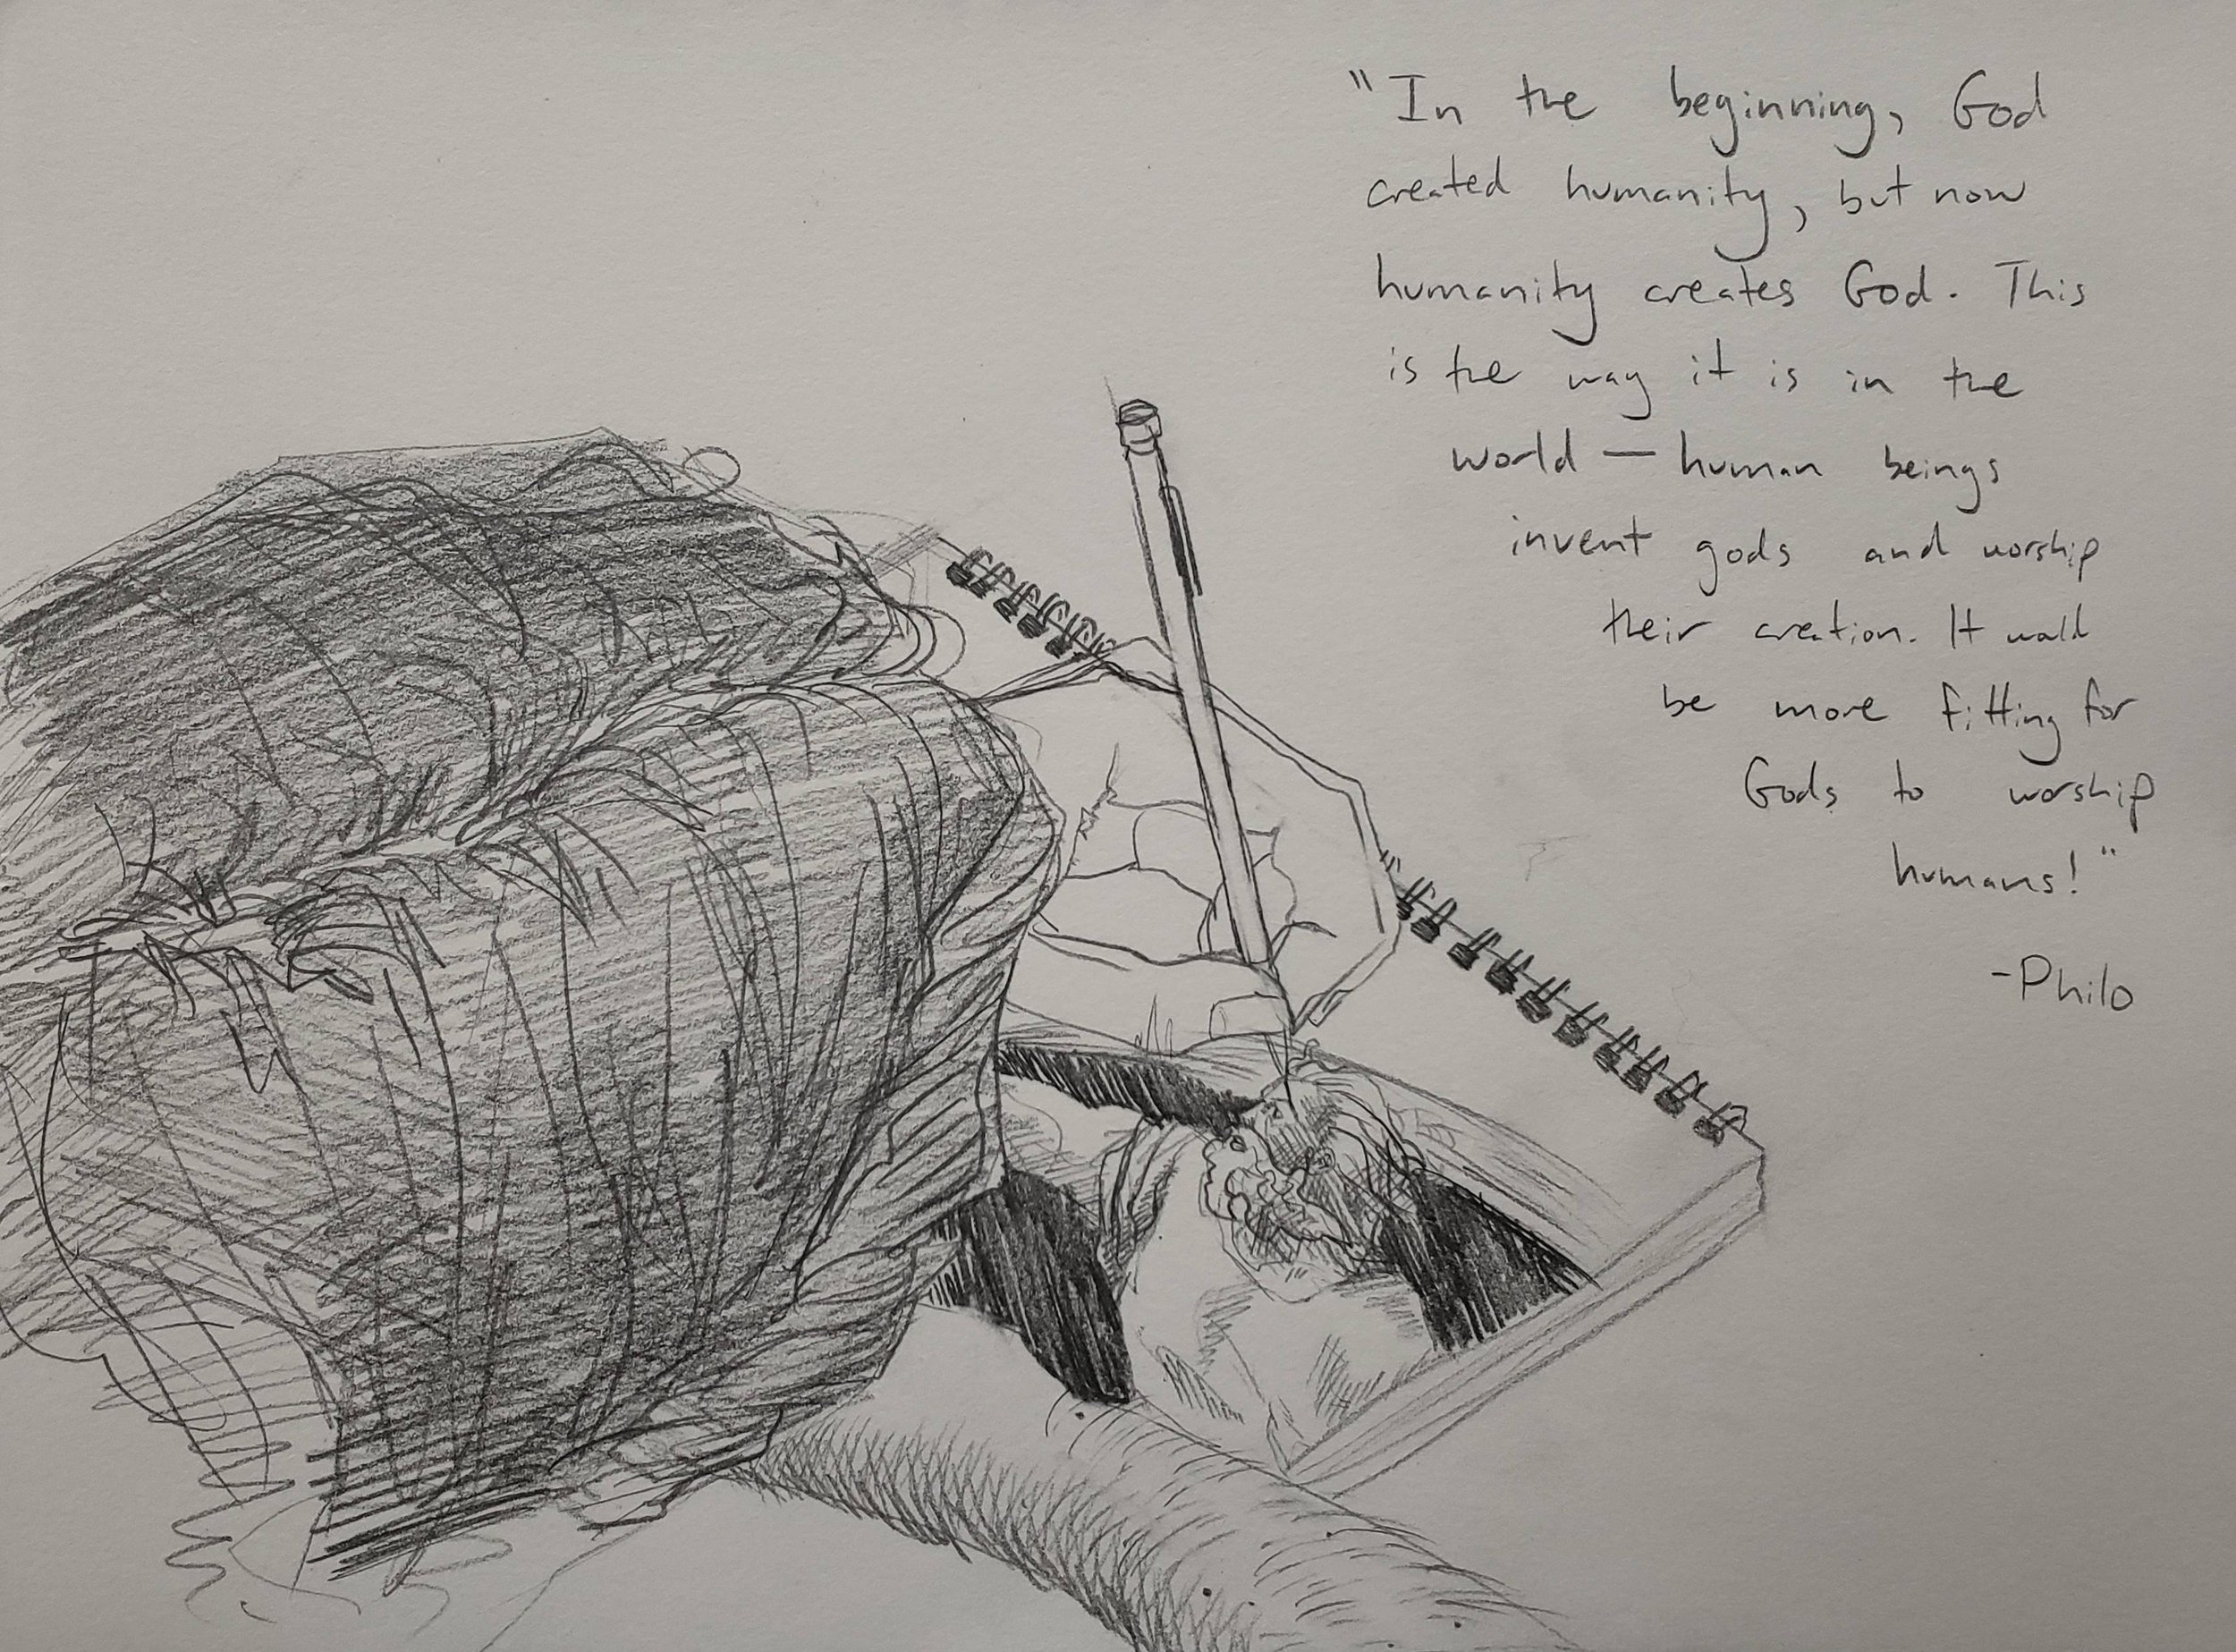 "In the beginning, God
created humanity, but now
humanity creates God. This
is the way it is in the
world — human beings
invent gods and worship
their creation. It would
be more fitting for
Gods to worship
humans!"
-Philo